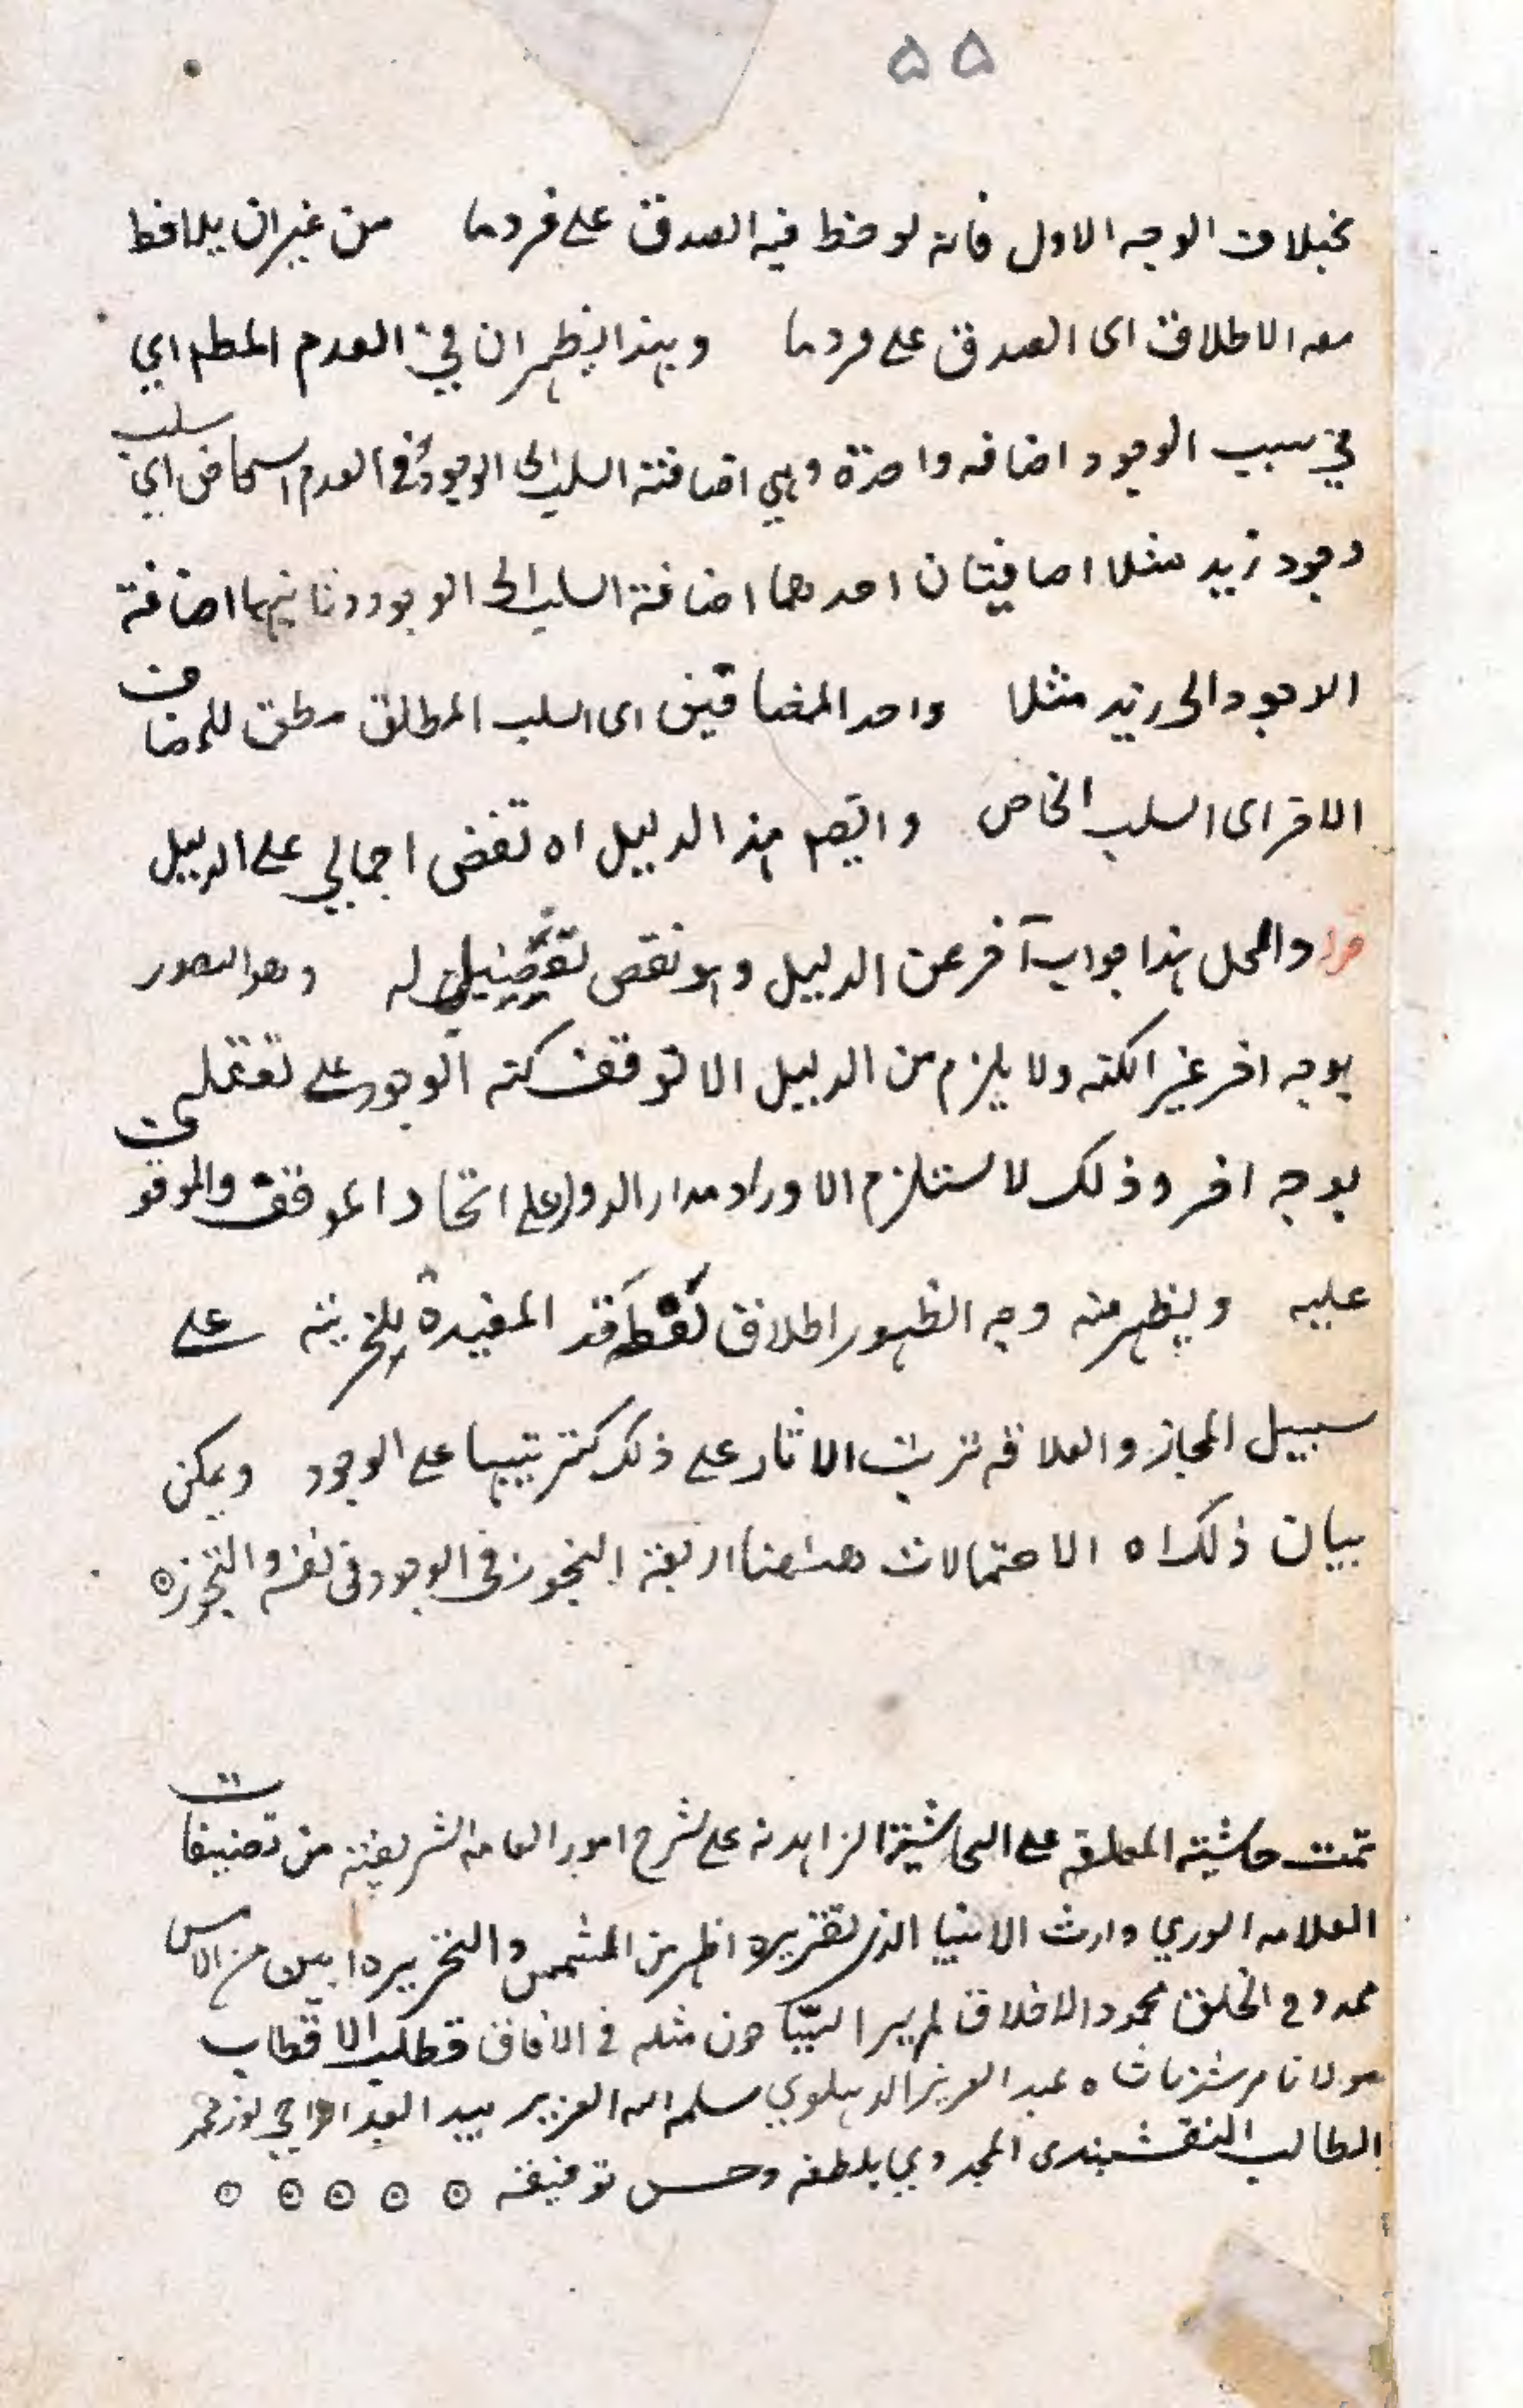 ۵۵
بخلاف الوجه الاول فانه لوحظ فيه الصدق على فرد ما من غير ان يلاحظ
معه الاطلاق اى الصدق على فرد ما وبهذا يظهر ان في العدم المطم اي
في سبب الوجود اضافه واحدة وهي اضافة السلب الى الوجود وفى العدم الخاص اي سلب
وجود زيد مثلا اضافيتان احدهما اضافة السلب الى الوجود وثانيهما اضافة
الوجود الى زيد مثلا واحد المضافين اى السلب المطلق مطلق للمضاف
الاخر اى السلب الخاص وايضا هذا الدليل اه نقض اجمالي على الدليل
قوله والحل هذا جواب آخر عن الدليل وهو نقض تفصيلي له وهو التصور
بوجه اخر غير الكنه ولا يلزم من الدليل الا توقف كنه الوجود على تعقله
بوجه اخر وذلك لا يستلزم الا وراد مدار الدور على اتحاد الموقف والموقوف
عليه ويظهر منه وجه الظهور اطلاق لفظ قد المفيدة للجزيئة على
سبيل المجاز والعلاقه ترتب الاثار على ذلك كترتيبها على الوجود ويمكن
بيان ذلك اه الاحتمالات ههنا اربعة التجوز فى الوجود فى نفسه والتجوزه
تمت حاشيته المعلقه على الحاشية الزاهدية على شرح امور العامه الشريفة من تصنيفات
العلامه الوري وارث الانبيا الذى تقريره اظهر من الشمس والتحريره ابين من الامس
ممدوح الخلق محمود الاخلاق لم ير السياحون مثله فى الافاق قطب الاقطاب
مولانا مرشدنا شاه عبد العزيز الدهلوي سلمه الله العزيز بيد العبد الراجي نور محمد
الطالب النقشبندى المجددي بلطفه وحسن توفيقه